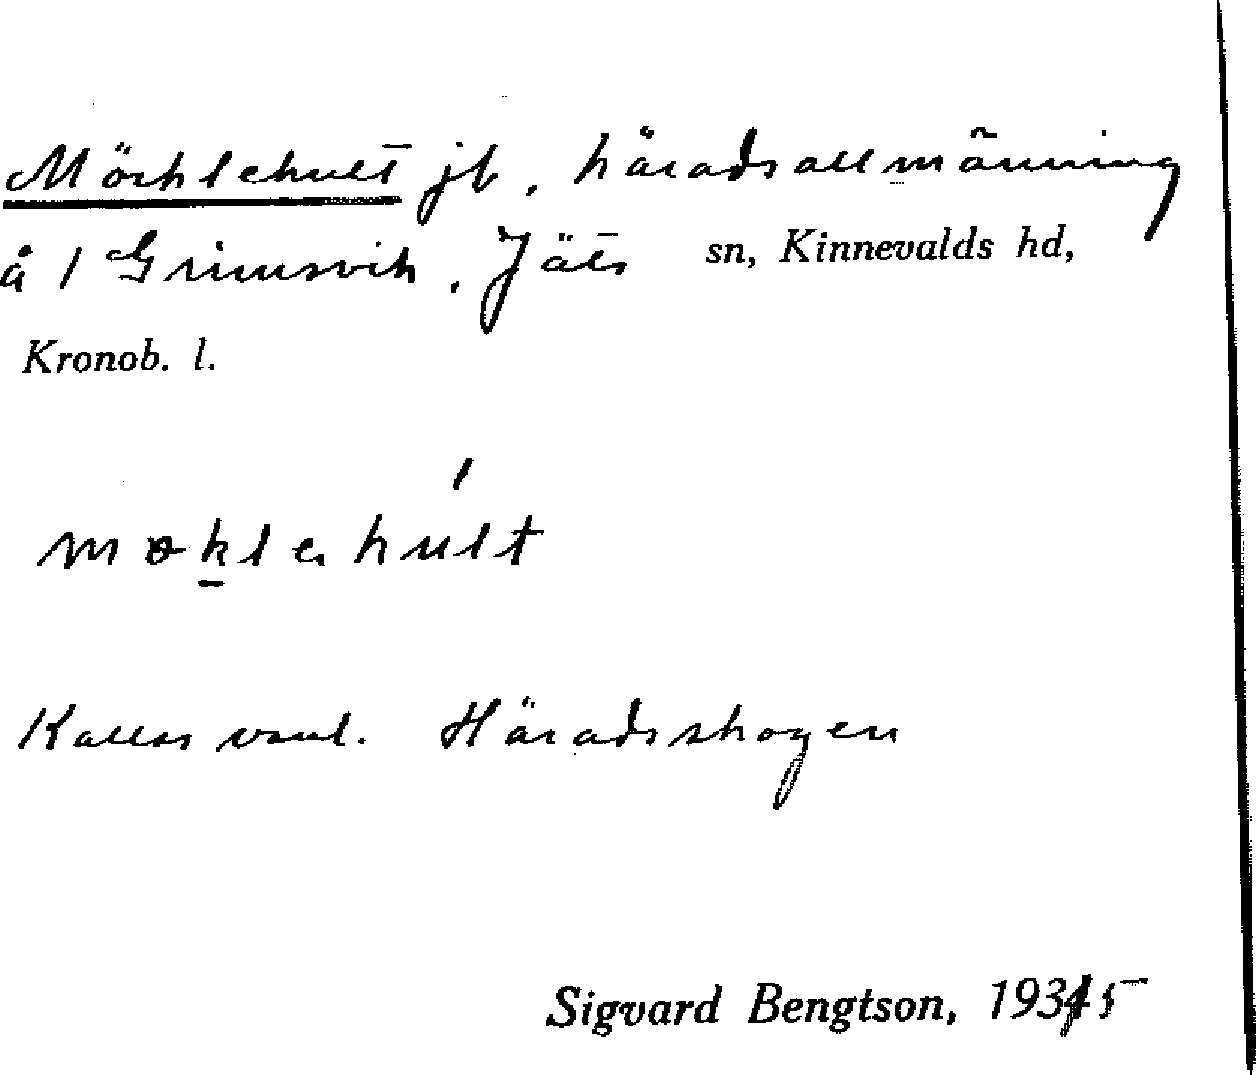 Möcklehult jb, häradsallmänning
å 1 Grimsvik, Jäts sn, Kinnevalds hd,
Kronob. l.
møklehúlt
Kallas vanl. Häradsskogen
Sigvard Bengtson, 1935